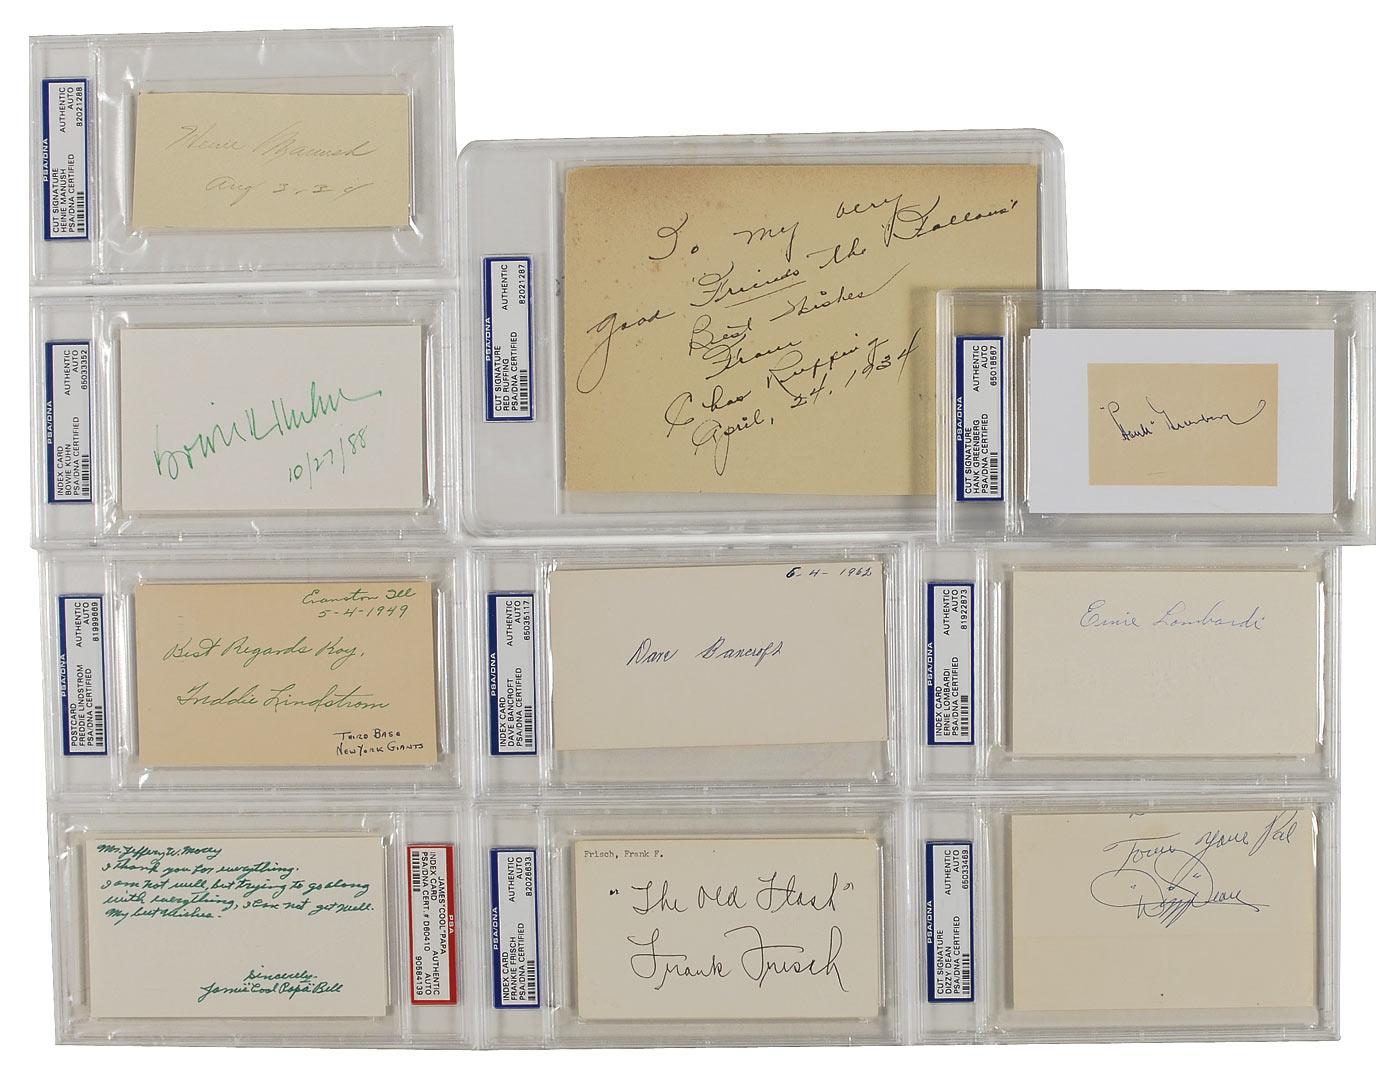 PSA/DNA
CUT SIGNATURE AUTHENTIC
HEINIE MANUSH AUTO
PSA/DNA CERTIFIED 82021288
Heinie Manush
Aug 3-34
PSA/DNA
CUT SIGNATURE AUTHENTIC
RED RUFFING
PSA/DNA CERTIFIED 82021287
To my very
good Friends the "Fallons"
Best Wishes
From
Chas Ruffing
April, 24, 1934
PSA/DNA
INDEX CARD AUTHENTIC
BOWIE KUHN AUTO
PSA/DNA CERTIFIED 65033352
Bowie K Kuhn
10/27/88
PSA/DNA
CUT SIGNATURE AUTHENTIC
HANK GREENBERG AUTO
PSA/DNA CERTIFIED 65018567
"Hank" Greenberg
PSA/DNA
POSTCARD AUTHENTIC
FREDDIE LINDSTROM AUTO
PSA/DNA CERTIFIED 81999669
Evanston Ill
5-4-1949
Best Regards Roy,
Freddie Lindstrom
THIRD BASE
NEW YORK GIANTS
PSA/DNA
INDEX CARD AUTHENTIC
DAVE BANCROFT AUTO
PSA/DNA CERTIFIED 65035117
6-4-1962
Dave Bancroft
PSA/DNA
INDEX CARD AUTHENTIC
ERNIE LOMBARDI AUTO
PSA/DNA CERTIFIED 81922873
Ernie Lombardi
Mr. Jeffery W. Morey
I thank you for everything.
I am not well, but trying to go along
with everything, I can not get well.
My best wishes.
Sincerely
James "Cool Papa" Bell
PSA
JAMES "COOL" PAPA AUTHENTIC
INDEX CARD AUTO
PSA/DNA CERT.# D60410 90584139
PSA/DNA
INDEX CARD AUTHENTIC
FRANKIE FRISCH AUTO
PSA/DNA CERTIFIED 82026633
Frisch, Frank F.
"The Old Flash"
Frank Frisch
PSA/DNA
CUT SIGNATURE AUTHENTIC
DIZZY DEAN AUTO
PSA/DNA CERTIFIED 65033469
Your Pal
"Dizzy" Dean